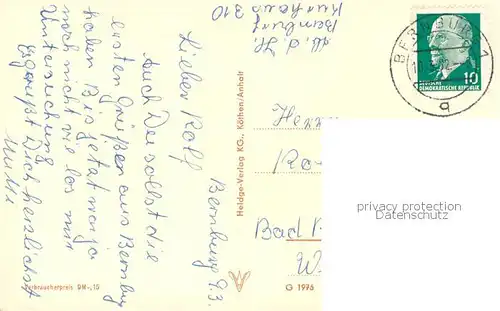 Abs. d. H.
Bernburg
Kurhaus 310
Lieber Rolf
Bernburg 9.3.
Auch Du sollst die
ersten Grüßen aus Bernburg
haben Bis jetzt war ja
noch nicht viel los mit
Untersuchung
Es grüßt Dich herzlichst
Mutti
BERNBURG 1
10
DEUTSCHE
DEMOKRATISCHE REPUBLIK
q
Herrn
Bad
W
Heldge-Verlag KG., Köthen/Anhalt
Verbraucherpreis DM -,15
G 1975
privacy protection
Datenschutz